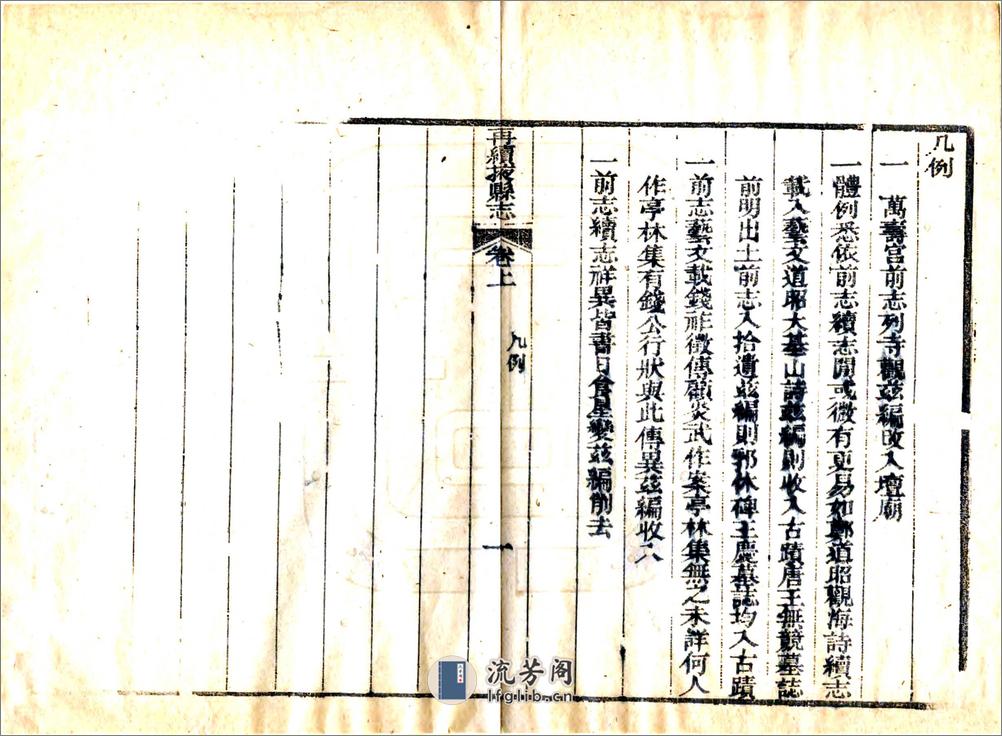 凡例
一 萬壽宮前志列寺觀茲編改入壇廟
一體例悉依前志續志間或微有更易如鄭道昭觀海詩續志
載入藝文道昭大基山詩茲編則收入古蹟唐王無競墓誌
前明出土前志入拾遺茲編則郭休碑王慶墓誌均入古蹟
一前志藝文載錢祚徵傳顧炎武作案亭林集無之未詳何人
作亭林集有錢公行狀與此傳異茲編收入
一前志續志祥異皆書日食星變茲編削去
再續掖縣志
卷上
凡例
一
流芳阁
lfglib.cn